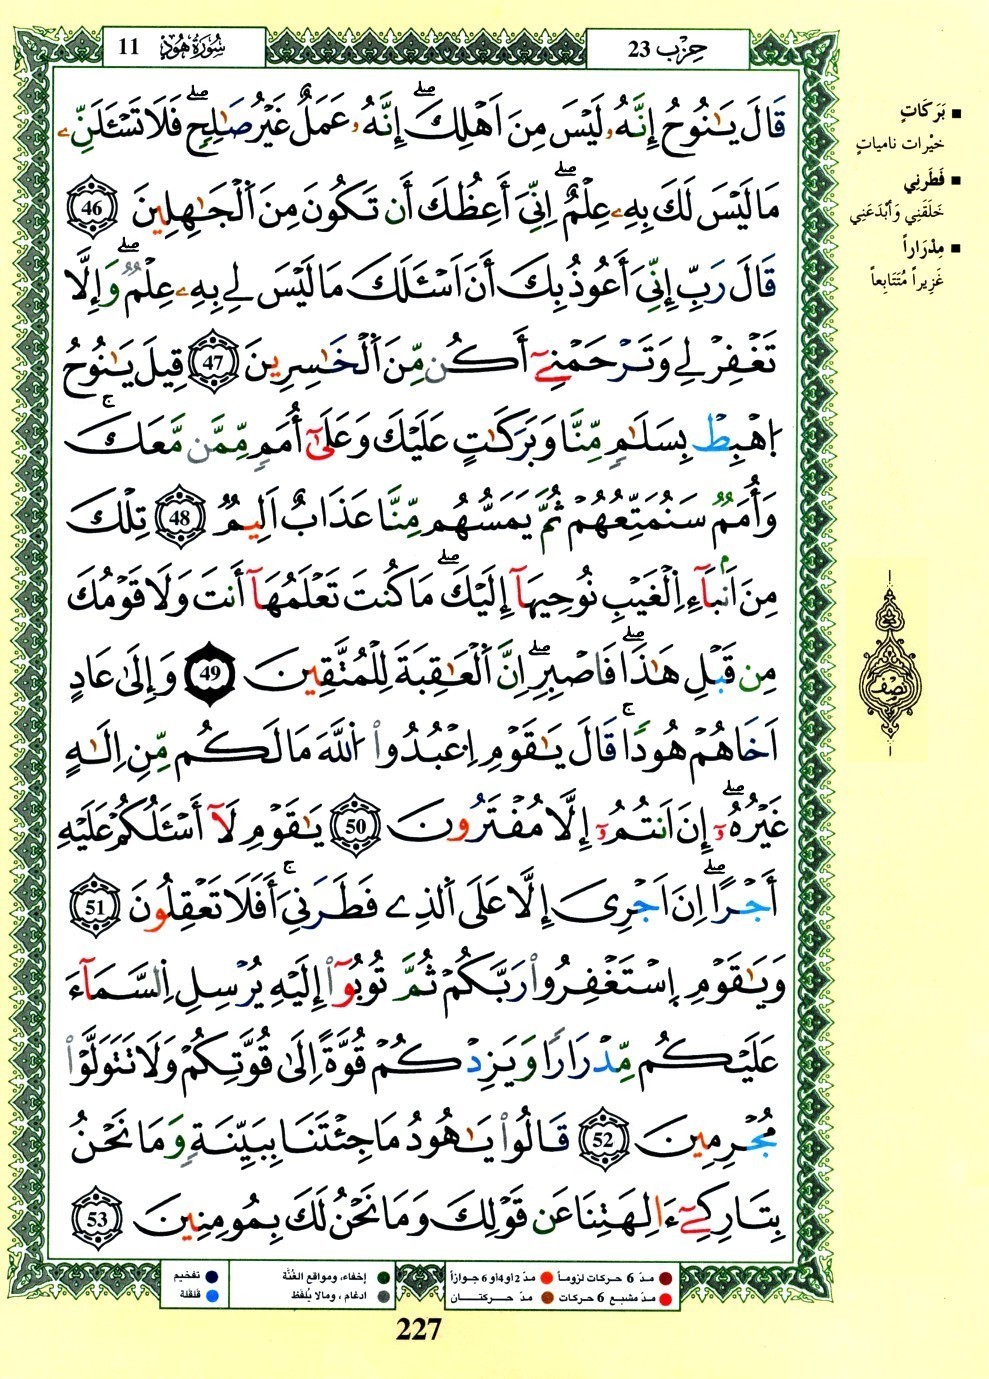 سُورَةُ هُودٍ 11
حِزْب 23
قَالَ يَٰنُوحُ إِنَّهُۥ لَيْسَ مِنَ اَهْلِكَۖ إِنَّهُۥ عَمَلٌ غَيْرُ صَٰلِحٖۖ فَلَا تَسْـَٔلَنِّۦ
مَا لَيْسَ لَكَ بِهِۦ عِلْمٌۖ اِنِّيَ أَعِظُكَ أَن تَكُونَ مِنَ اَ۬لْجَٰهِلِينَ 46
قَالَ رَبِّ إِنِّيَ أَعُوذُ بِكَ أَنَ اَسْـَٔلَكَ مَا لَيْسَ لِے بِهِۦ عِلْمٞۖ وَإِلَّا
تَغْفِرْ لِے وَتَرْحَمْنِےٓ أَكُن مِّنَ اَ۬لْخَٰسِرِينَ 47 قِيلَ يَٰنُوحُ
اُ۪هْبِطْ بِسَلَٰمٖ مِّنَّا وَبَرَكَٰتٍ عَلَيْكَ وَعَلَىٰٓ أُمَمٖ مِّمَّن مَّعَكَۚ
وَأُمَمٞ سَنُمَتِّعُهُمْ ثُمَّ يَمَسُّهُم مِّنَّا عَذَابٌ اَلِيمٞ 48 تِلْكَ
مِنَ اَنۢبَآءِ اِ۬لْغَيْبِ نُوحِيهَآ إِلَيْكَۖ مَا كُنتَ تَعْلَمُهَآ أَنتَ وَلَا قَوْمُكَ
مِن قَبْلِ هَٰذَاۖ فَاصْبِرِۖ اِنَّ اَ۬لْعَٰقِبَةَ لِلْمُتَّقِينَ 49 وَإِلَىٰ عَادٍ
اَخَاهُمْ هُودٗاۚ قَالَ يَٰقَوْمِ اِ۟عْبُدُواْ اُ۬للَّهَ مَا لَكُم مِّنِ اِلَٰهٍ
غَيْرُهُۥٓۖ إِنَ اَنتُمُۥٓ إِلَّا مُفْتَرُونَ 50 يَٰقَوْمِ لَآ أَسْـَٔلُكُمْ عَلَيْهِ
أَجْرًاۖ اِنَ اَجْرِيَ إِلَّا عَلَى اَ۬لذِے فَطَرَنِيَۚ أَفَلَا تَعْقِلُونَ 51
وَيَٰقَوْمِ اِ۪سْتَغْفِرُواْ رَبَّكُمْ ثُمَّ تُوبُوٓاْ إِلَيْهِ يُرْسِلِ اِ۬لسَّمَآءَ
عَلَيْكُم مِّدْرَارٗا وَيَزِدْكُمْ قُوَّةً إِلَىٰ قُوَّتِكُمْ وَلَا تَتَوَلَّوْاْ
مُجْرِمِينَ 52 قَالُواْ يَٰهُودُ مَا جِئْتَنَا بِبَيِّنَةٖ وَمَا نَحْنُ
بِتَارِكِےٓ ءَالِهَتِنَا عَن قَوْلِكَ وَمَا نَحْنُ لَكَ بِمُومِنِينَ 53
■ بَرَكَاتٍ
خَيْرَات نامِياتٍ
■ فَطَرَنِي
خَلَقَنِي وَأَبْدَعَنِي
■ مِدْرَاراً
غَزِيراً مُتَتَابِعاً
نِصْف
مدّ 6 حركات لزوماً
مدّ 2 او 4 او 6 جوازاً
مدّ مشبع 6 حركات
مدّ حركتـــان
إخفاء، ومواقع الغُنَّة
ادغام ، ومالا يُلفَظ
تفخيم
قلقلة
227